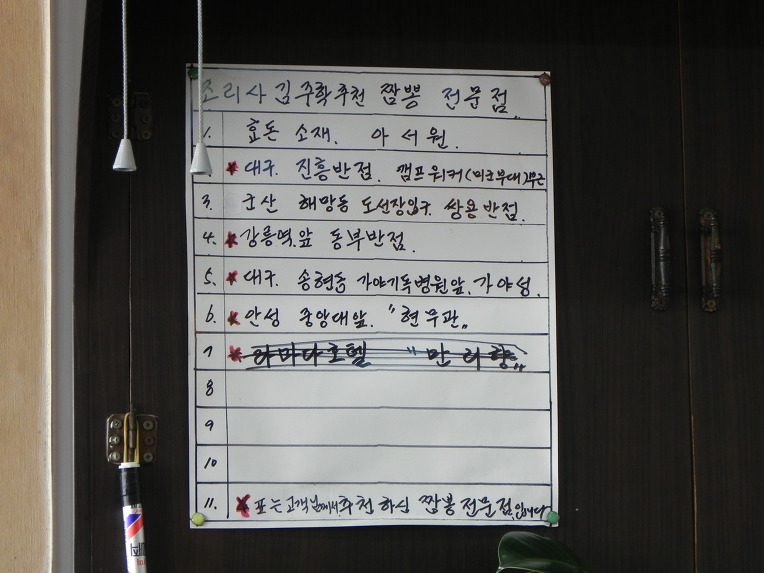 조리사 김주학 추천 짬뽕 전문점
1. 효돈 소재. 아서원.
★ 대구. 진흥반점. 캠프워커(미군부대)부근
3. 군산 해망동 도선장입구. 쌍용반점.
4. ★ 강릉역.앞 동부반점.
5. ★ 대구. 송현동 가야기독병원앞. 가야성.
6. ★ 안성 중앙대앞. "현무관"
7 ★ 라마다호텔 "만리향"
8
9
10
11. ★ 표는 고객님께서 추천하신 짬뽕전문점.입니다